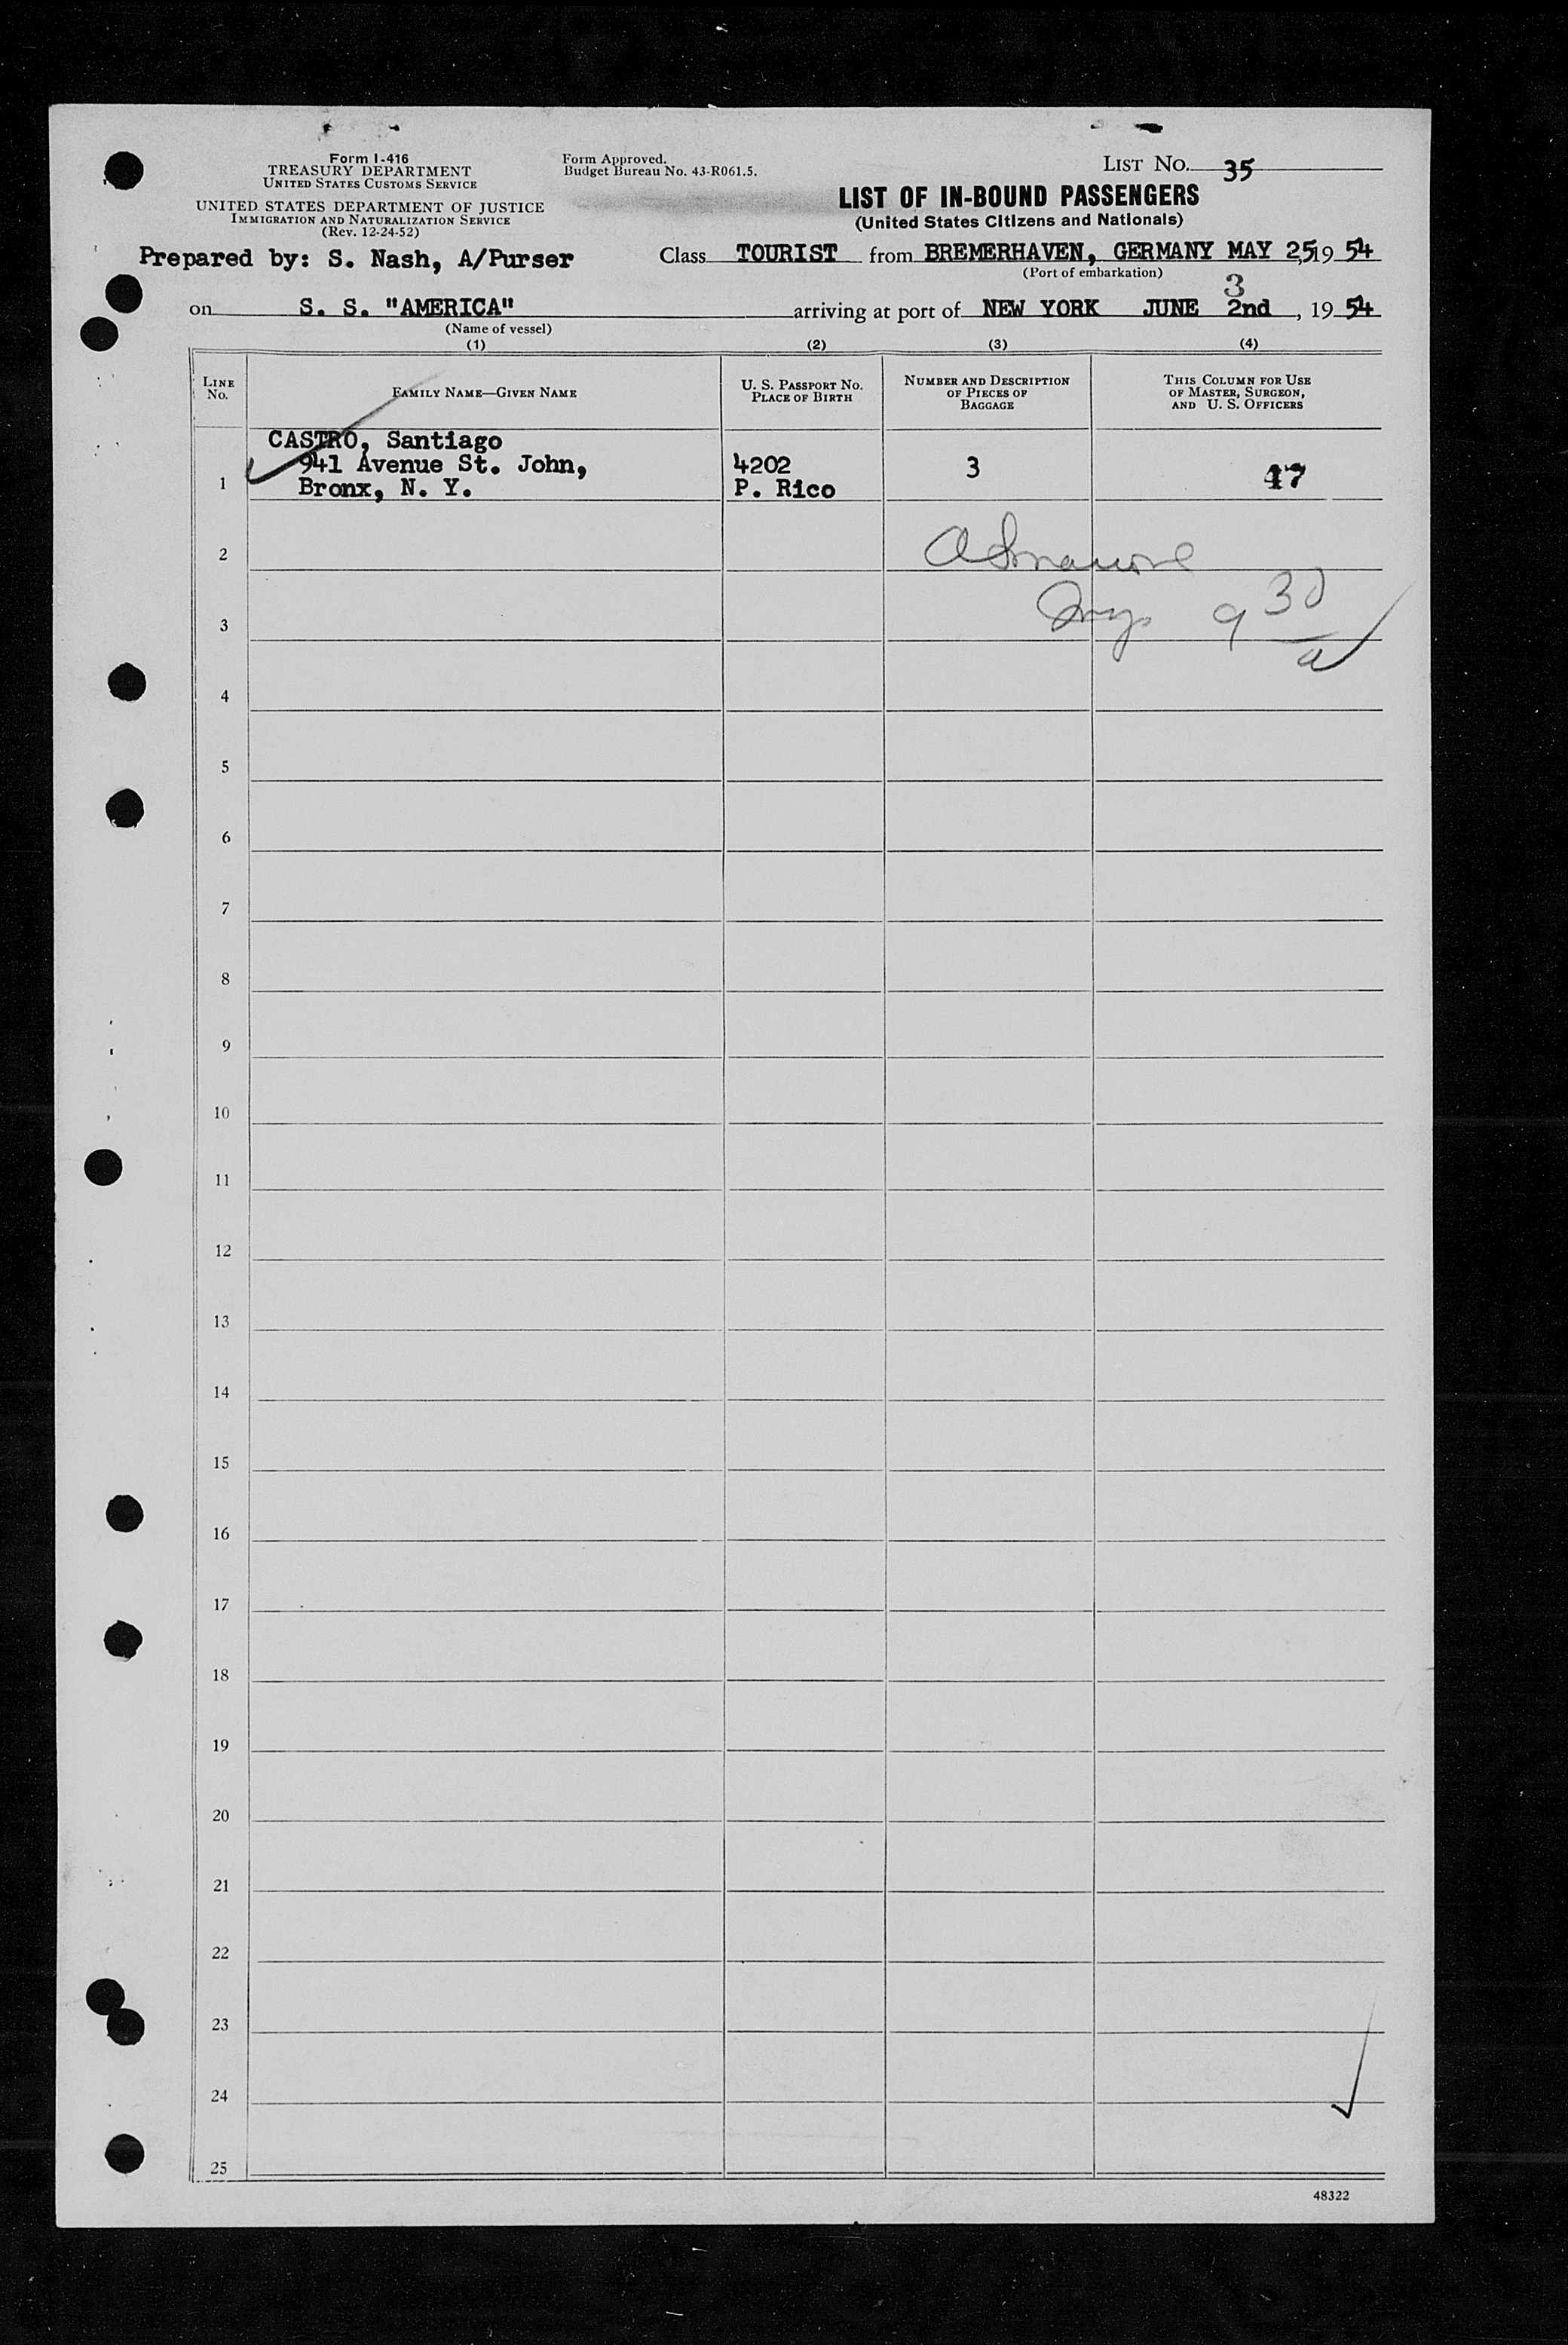 Form I-416
TREASURY DEPARTMENT
UNITED STATES CUSTOMS SERVICE
UNITED STATES DEPARTMENT OF JUSTICE
IMMIGRATION AND NATURALIZATION SERVICE
(Rev. 12-24-52)
Form Approved.
Budget Bureau No. 43-R061.5.
LIST NO. 35
LIST OF IN-BOUND PASSENGERS
(United States Citizens and Nationals)
Prepared by: S. Nash, A/Purser
Class TOURIST from BREMERHAVEN, GERMANY MAY 25, 19 54
(Port of embarkation)
3
on S. S. "AMERICA" arriving at port of NEW YORK JUNE 2nd, 19 54
(Name of vessel)
(1) (2) (3) (4)
LINE NO.
FAMILY NAME—GIVEN NAME
U. S. PASSPORT NO.
PLACE OF BIRTH
NUMBER AND DESCRIPTION
OF PIECES OF
BAGGAGE
THIS COLUMN FOR USE
OF MASTER, SURGEON,
AND U. S. OFFICERS
CASTRO, Santiago
941 Avenue St. John, 4202 3 47
1 Bronx, N. Y. P. Rico
2
3 9 30
a
4
5
6
7
8
9
10
11
12
13
14
15
16
17
18
19
20
21
22
23
24
25
48322